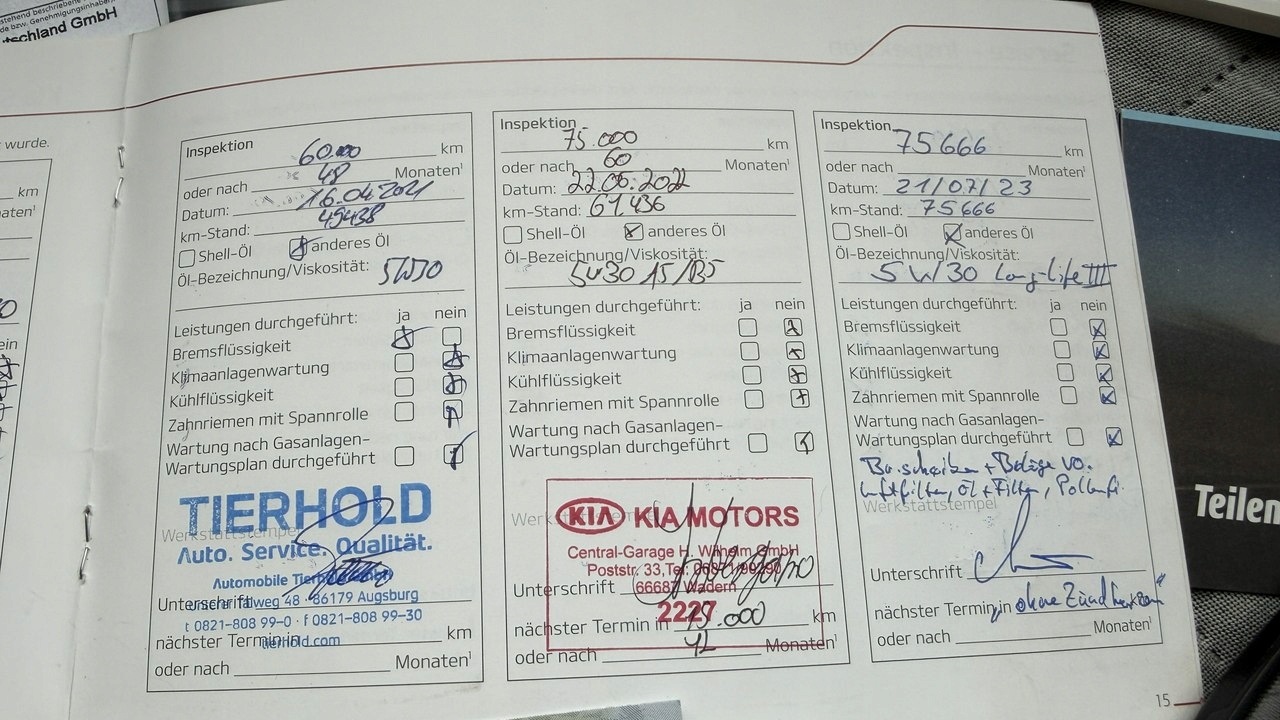 utschland GmbH
t wurde.
km
Inspektion 60.000 km
oder nach 48 Monaten¹
Datum: 16.04.2021
km-Stand: 45438
Shell-Öl anderes Öl
Öl-Bezeichnung/Viskosität: 5W30
Leistungen durchgeführt: ja nein
Bremsflüssigkeit
Klimaanlagenwartung
Kühlflüssigkeit
Zahnriemen mit Spannrolle
Wartung nach Gasanlagen-
Wartungsplan durchgeführt
TIERHOLD
Werkstattstempel
Auto. Service. Qualität.
Automobile
Unterschrift
48 · 86179 Augsburg
t 0821-808 99-0 · f 0821-808 99-30
tierhold.com
nächster Termin in km
oder nach Monaten¹
Inspektion 75.000 km
oder nach 60 Monaten¹
Datum: 22.06.2022
km-Stand: 61.436
Shell-Öl anderes Öl
Öl-Bezeichnung/Viskosität:
5W30 A5/B5
Leistungen durchgeführt: ja nein
Bremsflüssigkeit
Klimaanlagenwartung
Kühlflüssigkeit
Zahnriemen mit Spannrolle
Wartung nach Gasanlagen-
Wartungsplan durchgeführt
KIA KIA MOTORS
Central-Garage H. Wilhelm GmbH
Poststr. 33, Tel.
Unterschrift 66687 Wadern
2227
nächster Termin in km
oder nach 12 Monaten¹
Inspektion 75666 km
oder nach Monaten¹
Datum: 21/07/23
km-Stand: 75666
Shell-Öl anderes Öl
Öl-Bezeichnung/Viskosität:
5W30 Long-Life III
Leistungen durchgeführt: ja nein
Bremsflüssigkeit
Klimaanlagenwartung
Kühlflüssigkeit
Zahnriemen mit Spannrolle
Wartung nach Gasanlagen-
Wartungsplan durchgeführt
Br.scheiben + Beläge vo.
Luftfilter, Öl + Filter, Pollenfi.
Werkstattstempel
Unterschrift
nächster Termin in ohne Zündkerzen
oder nach Monaten¹
15
Teilen